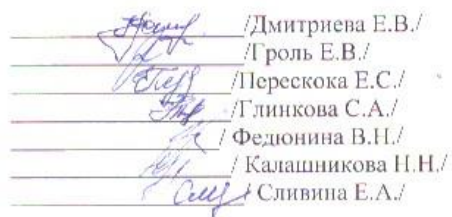 /Дмитриева Е.В./
/Гроль Е.В./
/Перескока Е.С./
/Глинкова С.А./
/ Федюнина В.Н./
/ Калашникова Н.Н./
/ Сливина Е.А./